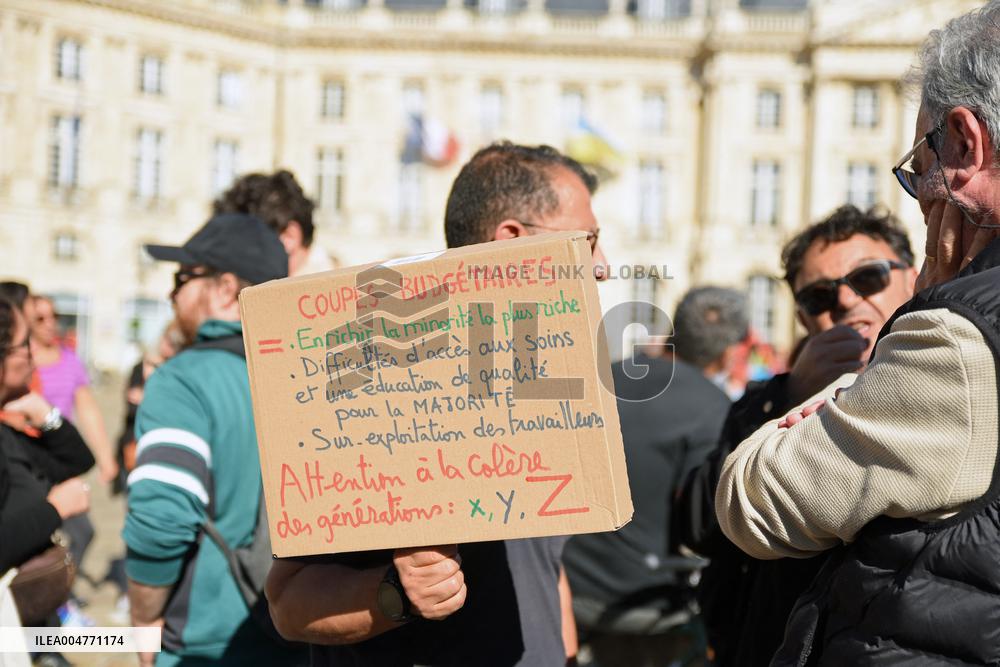 COUPES BUDGÉTAIRES
= . Enrichir la minorité la plus riche
. Difficultés d'accès aux soins
et une éducation de qualité
pour la MAJORITÉ
. Sur-exploitation des travailleurs
Attention à la colère
des générations : x, y, Z
IMAGE LINK GLOBAL
ILG
ILEA004771174